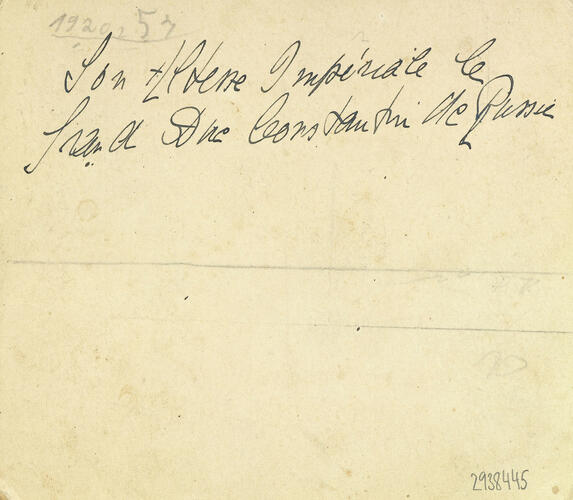 Son Altesse Impériale le
Grand Duc Constantin de Russie
2938445